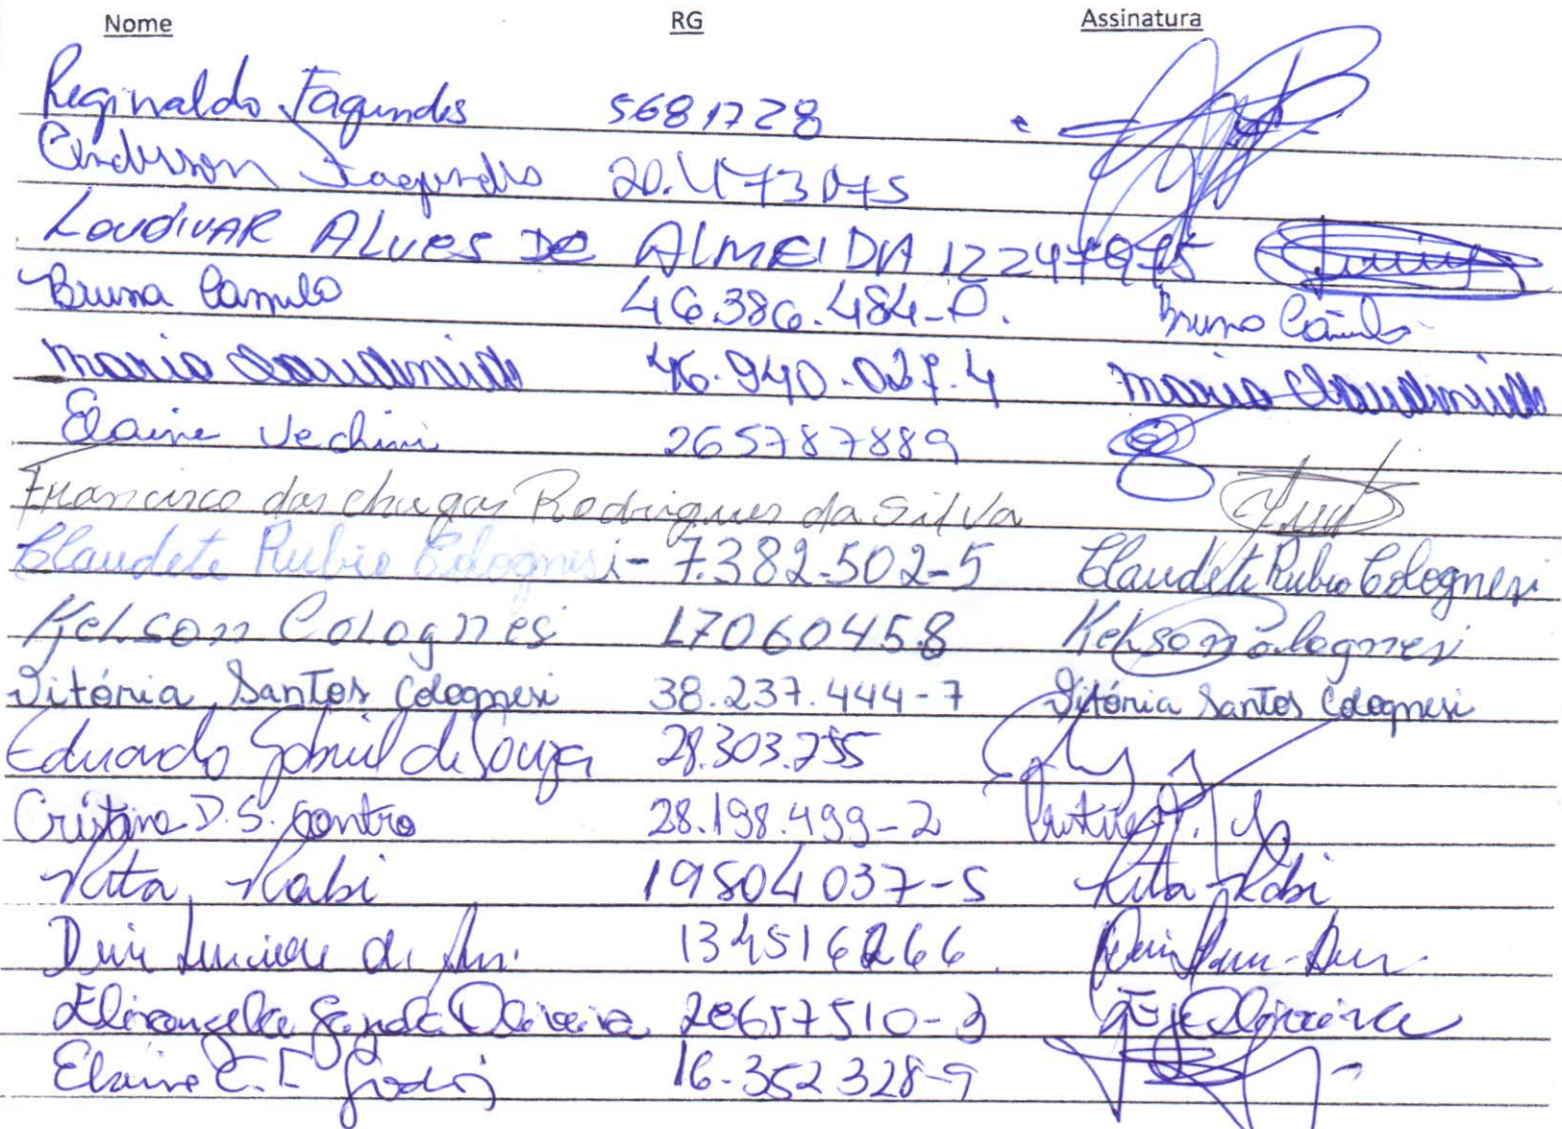 Nome RG Assinatura
Reginaldo Fagundes 5681728
Anderson Fagundes
LOUDIVAR ALVES DE ALMEIDA
Bruna Camilo 46.386.484-0. Bruna Camilo
Maria Claudineide Maria Claudineide
Elaine Vechini 265787889
Francisco das chagas Rodrigues da Silva
Claudete Rubio Colognesi - 7.382.502-5 Claudete Rubio Colognesi
Kelson Colognesi 17060458 Kelson Colognesi
Vitória Santos Colognesi 38.237.444-7 Vitória Santos Colognesi
Eduardo Gabriel de Souza 28.303.755
Cristina D.S. 28.198.499-2
Rita Kabi 19504037-5 Rita Kabi
Elisangela Oliveira 28657510-3 Oliveira
Elaine 16.352328-9